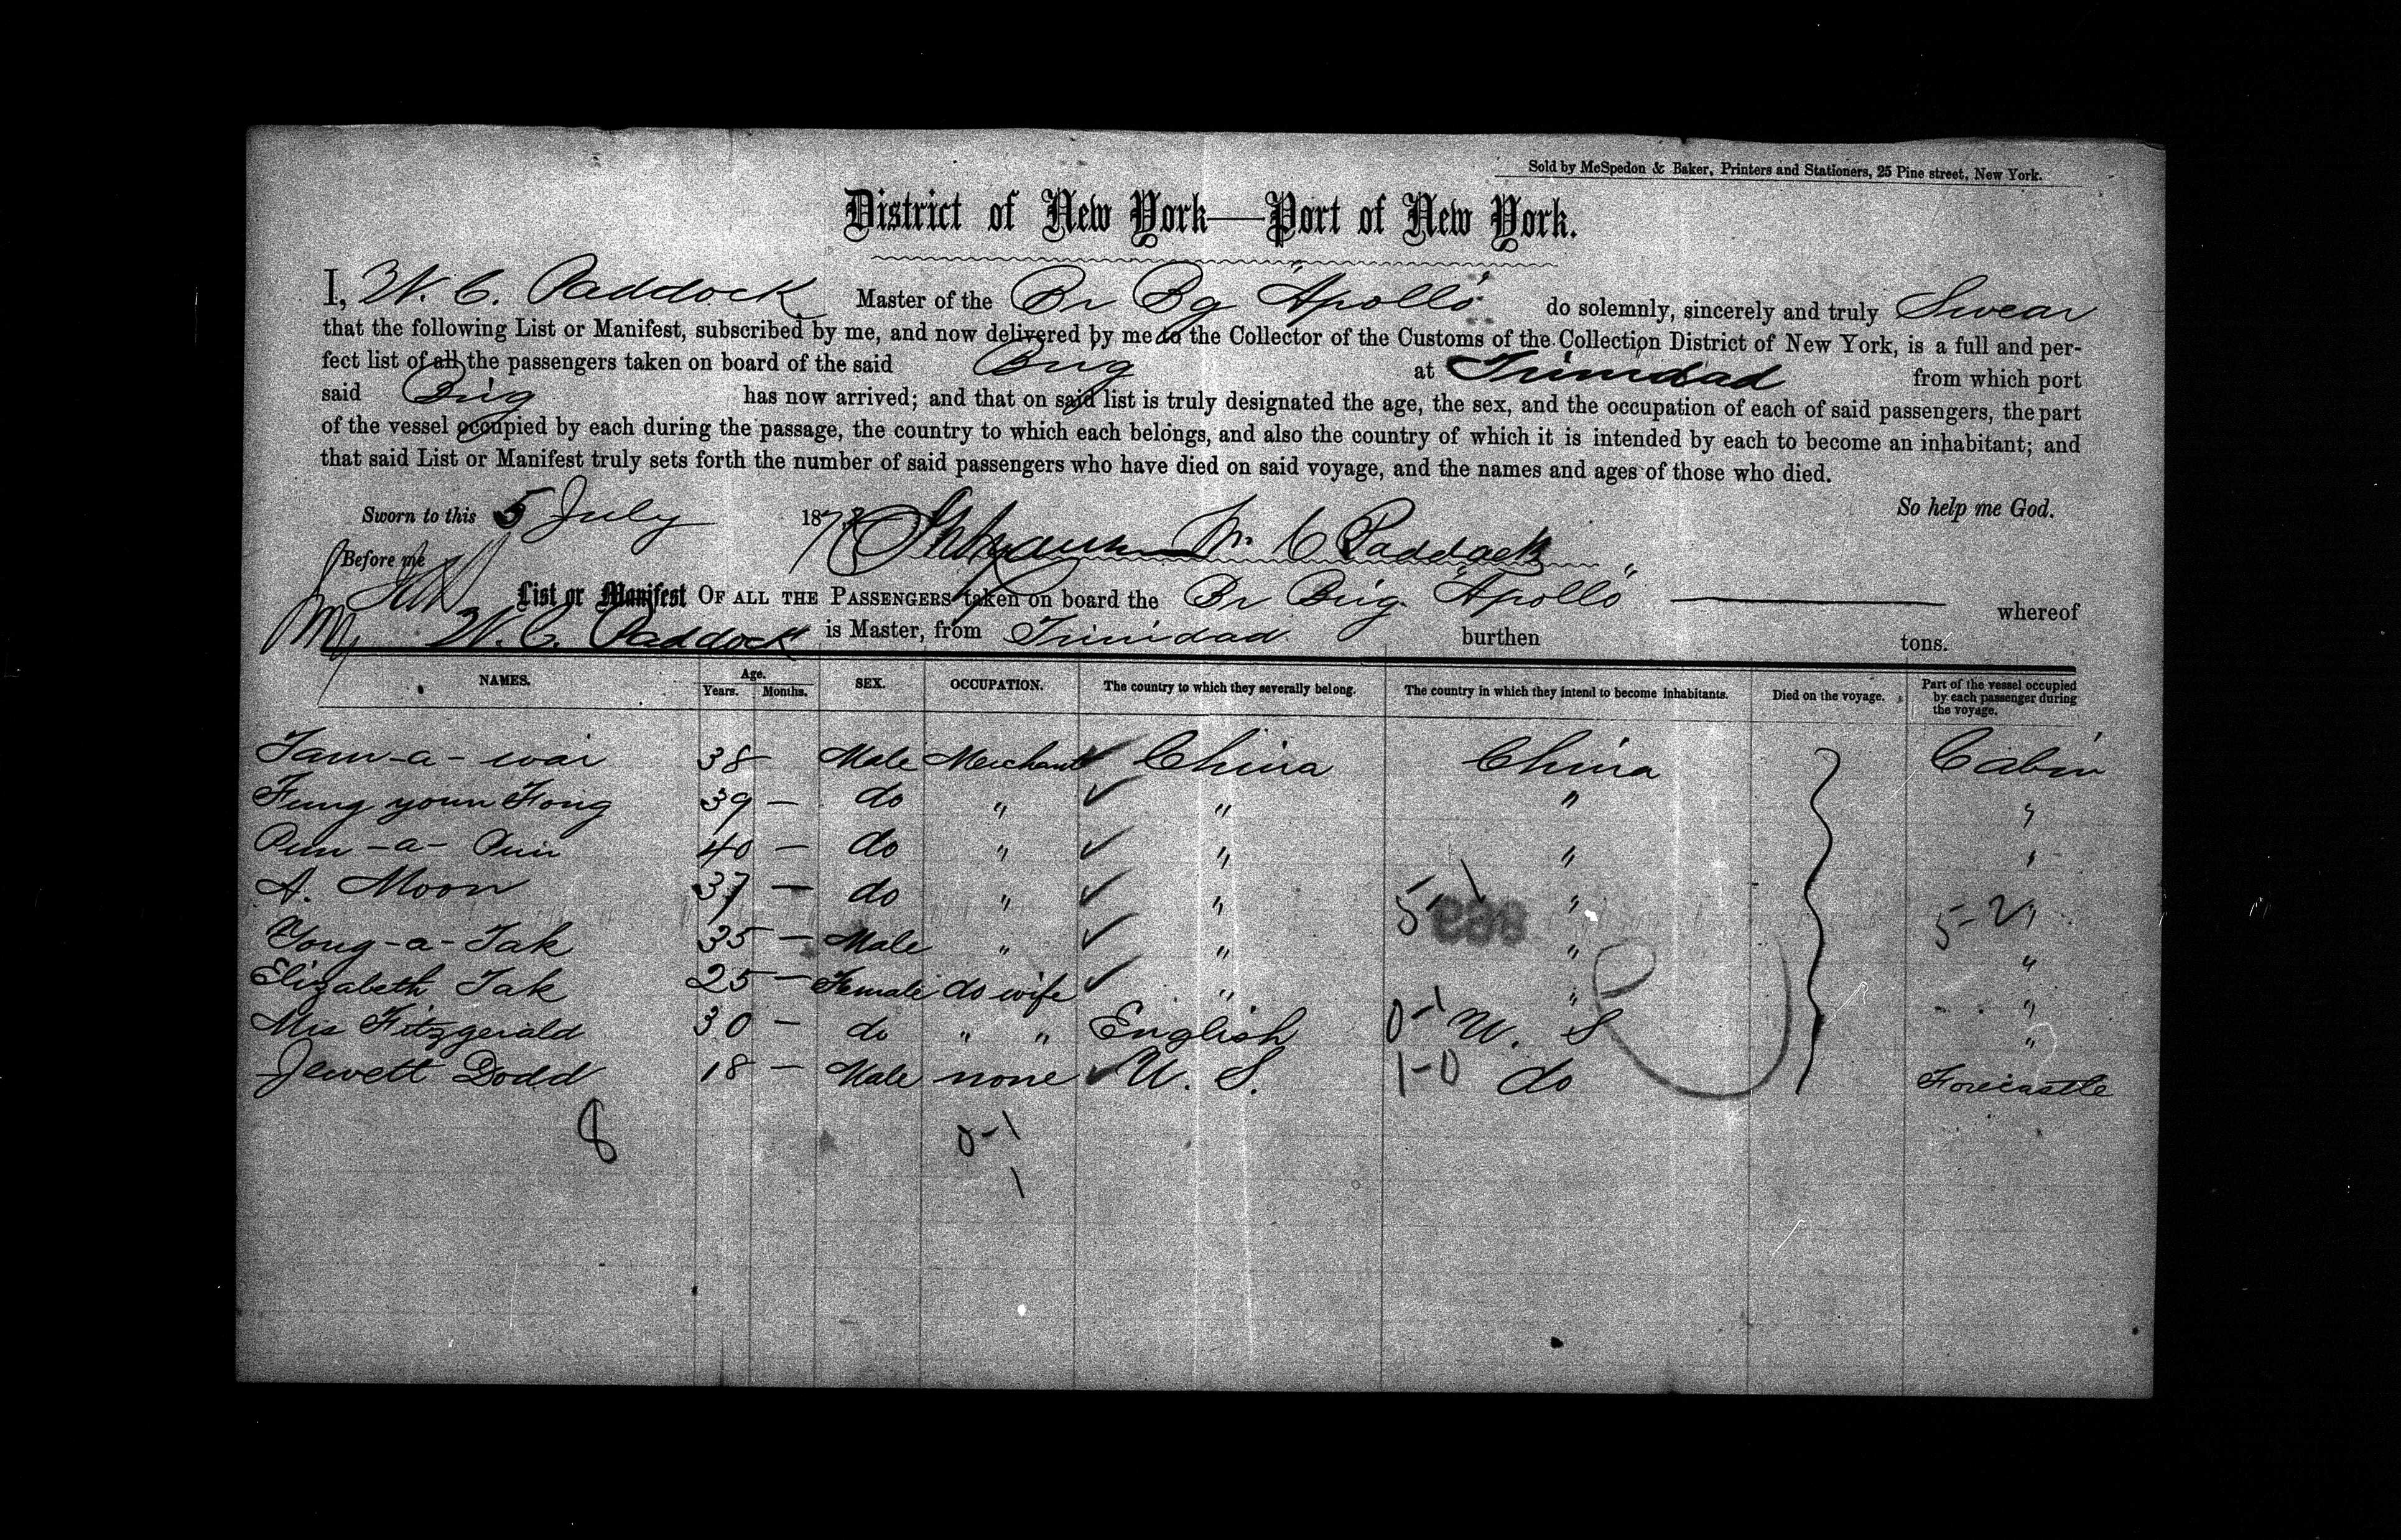 Sold by McSpedon & Baker, Printers and Stationers, 25 Pine street, New York.
District of New York—Port of New York.
I, W. C. Paddock Master of the Br Bg "Apollo" do solemnly, sincerely and truly Swear
that the following List or Manifest, subscribed by me, and now delivered by me to the Collector of the Customs of the Collection District of New York, is a full and per-
fect list of all the passengers taken on board of the said Brig at Trinidad from which port
said Brig has now arrived; and that on said list is truly designated the age, the sex, and the occupation of each of said passengers, the part
of the vessel occupied by each during the passage, the country to which each belongs, and also the country of which it is intended by each to become an inhabitant; and
that said List or Manifest truly sets forth the number of said passengers who have died on said voyage, and the names and ages of those who died.
So help me God.
Sworn to this 5 July 187 W. C Paddock
Before me
List or Manifest OF ALL THE PASSENGERS taken on board the Br Brig "Apollo" whereof
W. C. Paddock is Master, from Trinidad burthen tons.
NAMES. Age. Years. Months. SEX. OCCUPATION. The country to which they severally belong. The country in which they intend to become inhabitants. Died on the voyage. Part of the vessel occupied by each passenger during the voyage.
Tam-a-wai 38 Male Merchant ✓ China China Cabin
Fung youn Fong 39 — do " ✓ " " "
Pun-a- 40 — do " ✓ " " "
A. Moon 37 — do " ✓ " 5-1 " 5-2 "
Yong-a-Tak 35 — Male " ✓ " 893 " "
Elizabeth Tak 25 — Female do wife ✓ " " "
Mis Fitzgerald 30 — do " " English 0-1 U. S "
Jewett Dodd 18 — Male none ✓ U. S. 1-0 do Forecastle
8 0-1
1